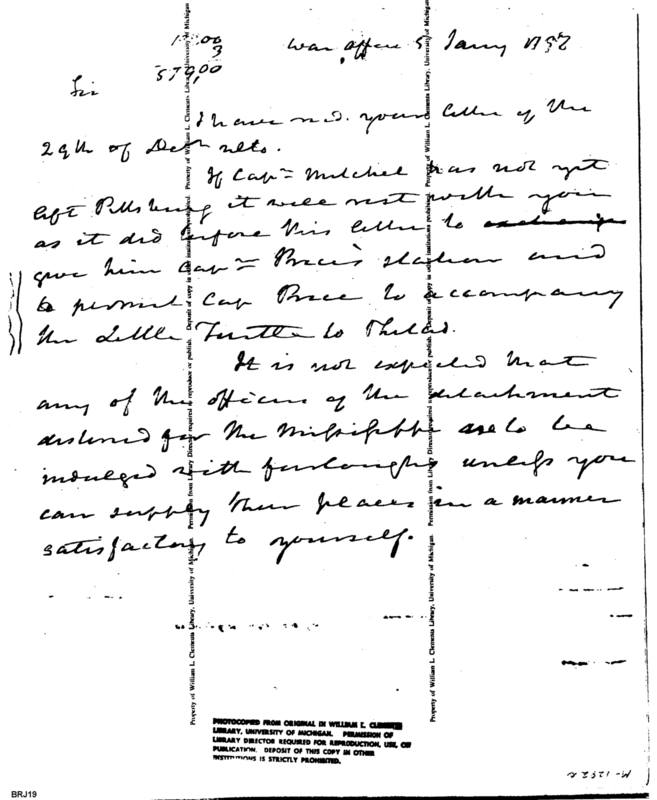 War office 5 Jany 1797
3
579,00
Sir
I have recd. your letter of the
29th of Decr ulto.
If Capn Mitchel has not yet
left Pittsburg it will rest with you
as it did before this letter to exchange
give him Capn Prices station and
to permit Cap Price to accompany
the Little Turtle to Philad.
It is not expected that
any of the officers of the detachment
destined for the Mississippi are to be
indulged with furloughs unless you
can supply their places in a manner
satisfactory to yourself.
Property of William L. Clements Library, University of Michigan. Permission from Library Director required to reproduce or publish. Deposit of copy in other institutions prohibited.
Property of William L. Clements Library, University of Michigan. Permission from Library Director required to reproduce or publish. Deposit of copy in other institutions prohibited.
PHOTOCOPIED FROM ORIGINAL IN WILLIAM L. CLEMENTS
LIBRARY, UNIVERSITY OF MICHIGAN. PERMISSION OF
LIBRARY DIRECTOR REQUIRED FOR REPRODUCTION, USE, OR
PUBLICATION. DEPOSIT OF THIS COPY IN OTHER
INSTITUTIONS IS STRICTLY PROHIBITED.
BRJ19